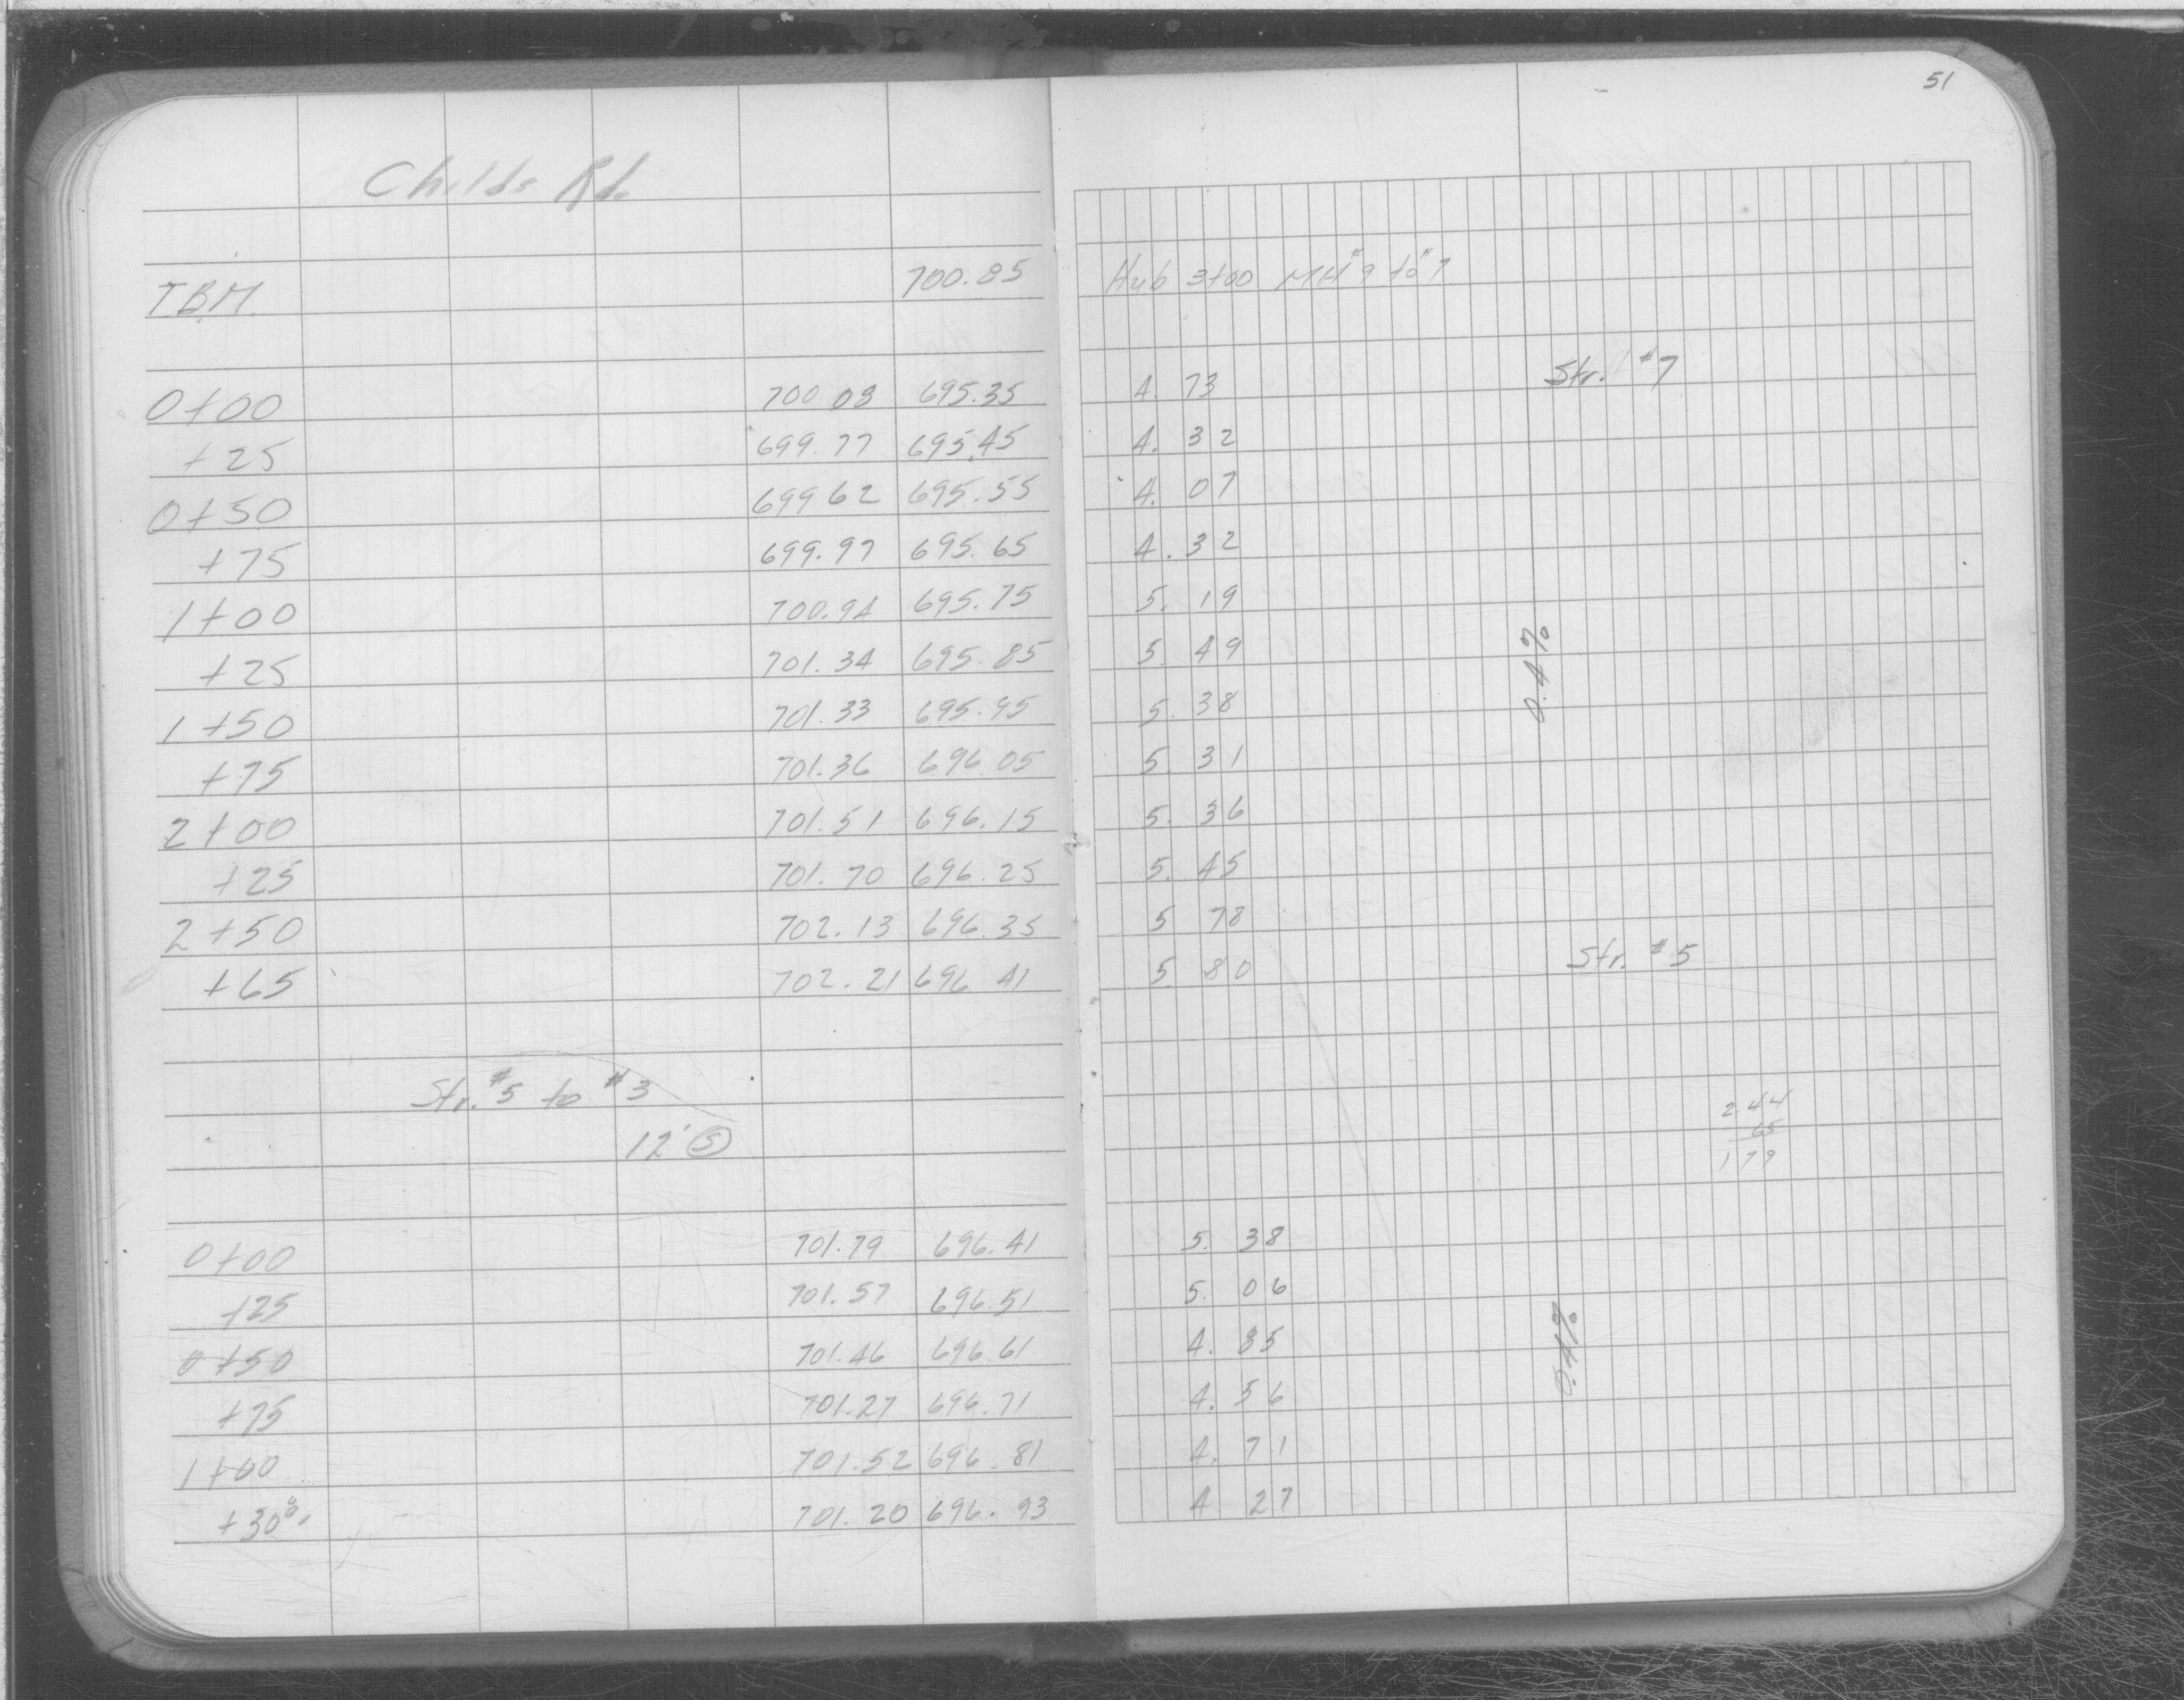 51
Childs Rd.
T.B.M. 700.85 Hub 3+00 MH #9 to #7
0+00 700 08 695.35 4. 73 Str. #7
+25 699.77 695.45 4. 32
0+50 699 62 695.55 4. 07
+75 699.97 695.65 4. 32
1+00 700.94 695.75 5. 19
+25 701.34 695.85 5. 49
0.4%
1+50 701.33 695.95 5. 38
+75 701.36 696 05 5. 31
2+00 701.51 696.15 5. 36
+25 701.70 696.25 5. 45
2+50 702.13 696.35 5 78
+65 702.21 696 41 5 80 Str. #5
Str. #5 to #3
2.44
12' Ⓢ 65
1 79
0+00 701.79 696.41 5. 38
+25 701.57 696.51 5. 06
0+50 701.46 696.61 4. 85
0.4%
+75 701.27 696.71 4. 56
1+00 701.52 696.81 4. 71
701.20 696.93 4 27